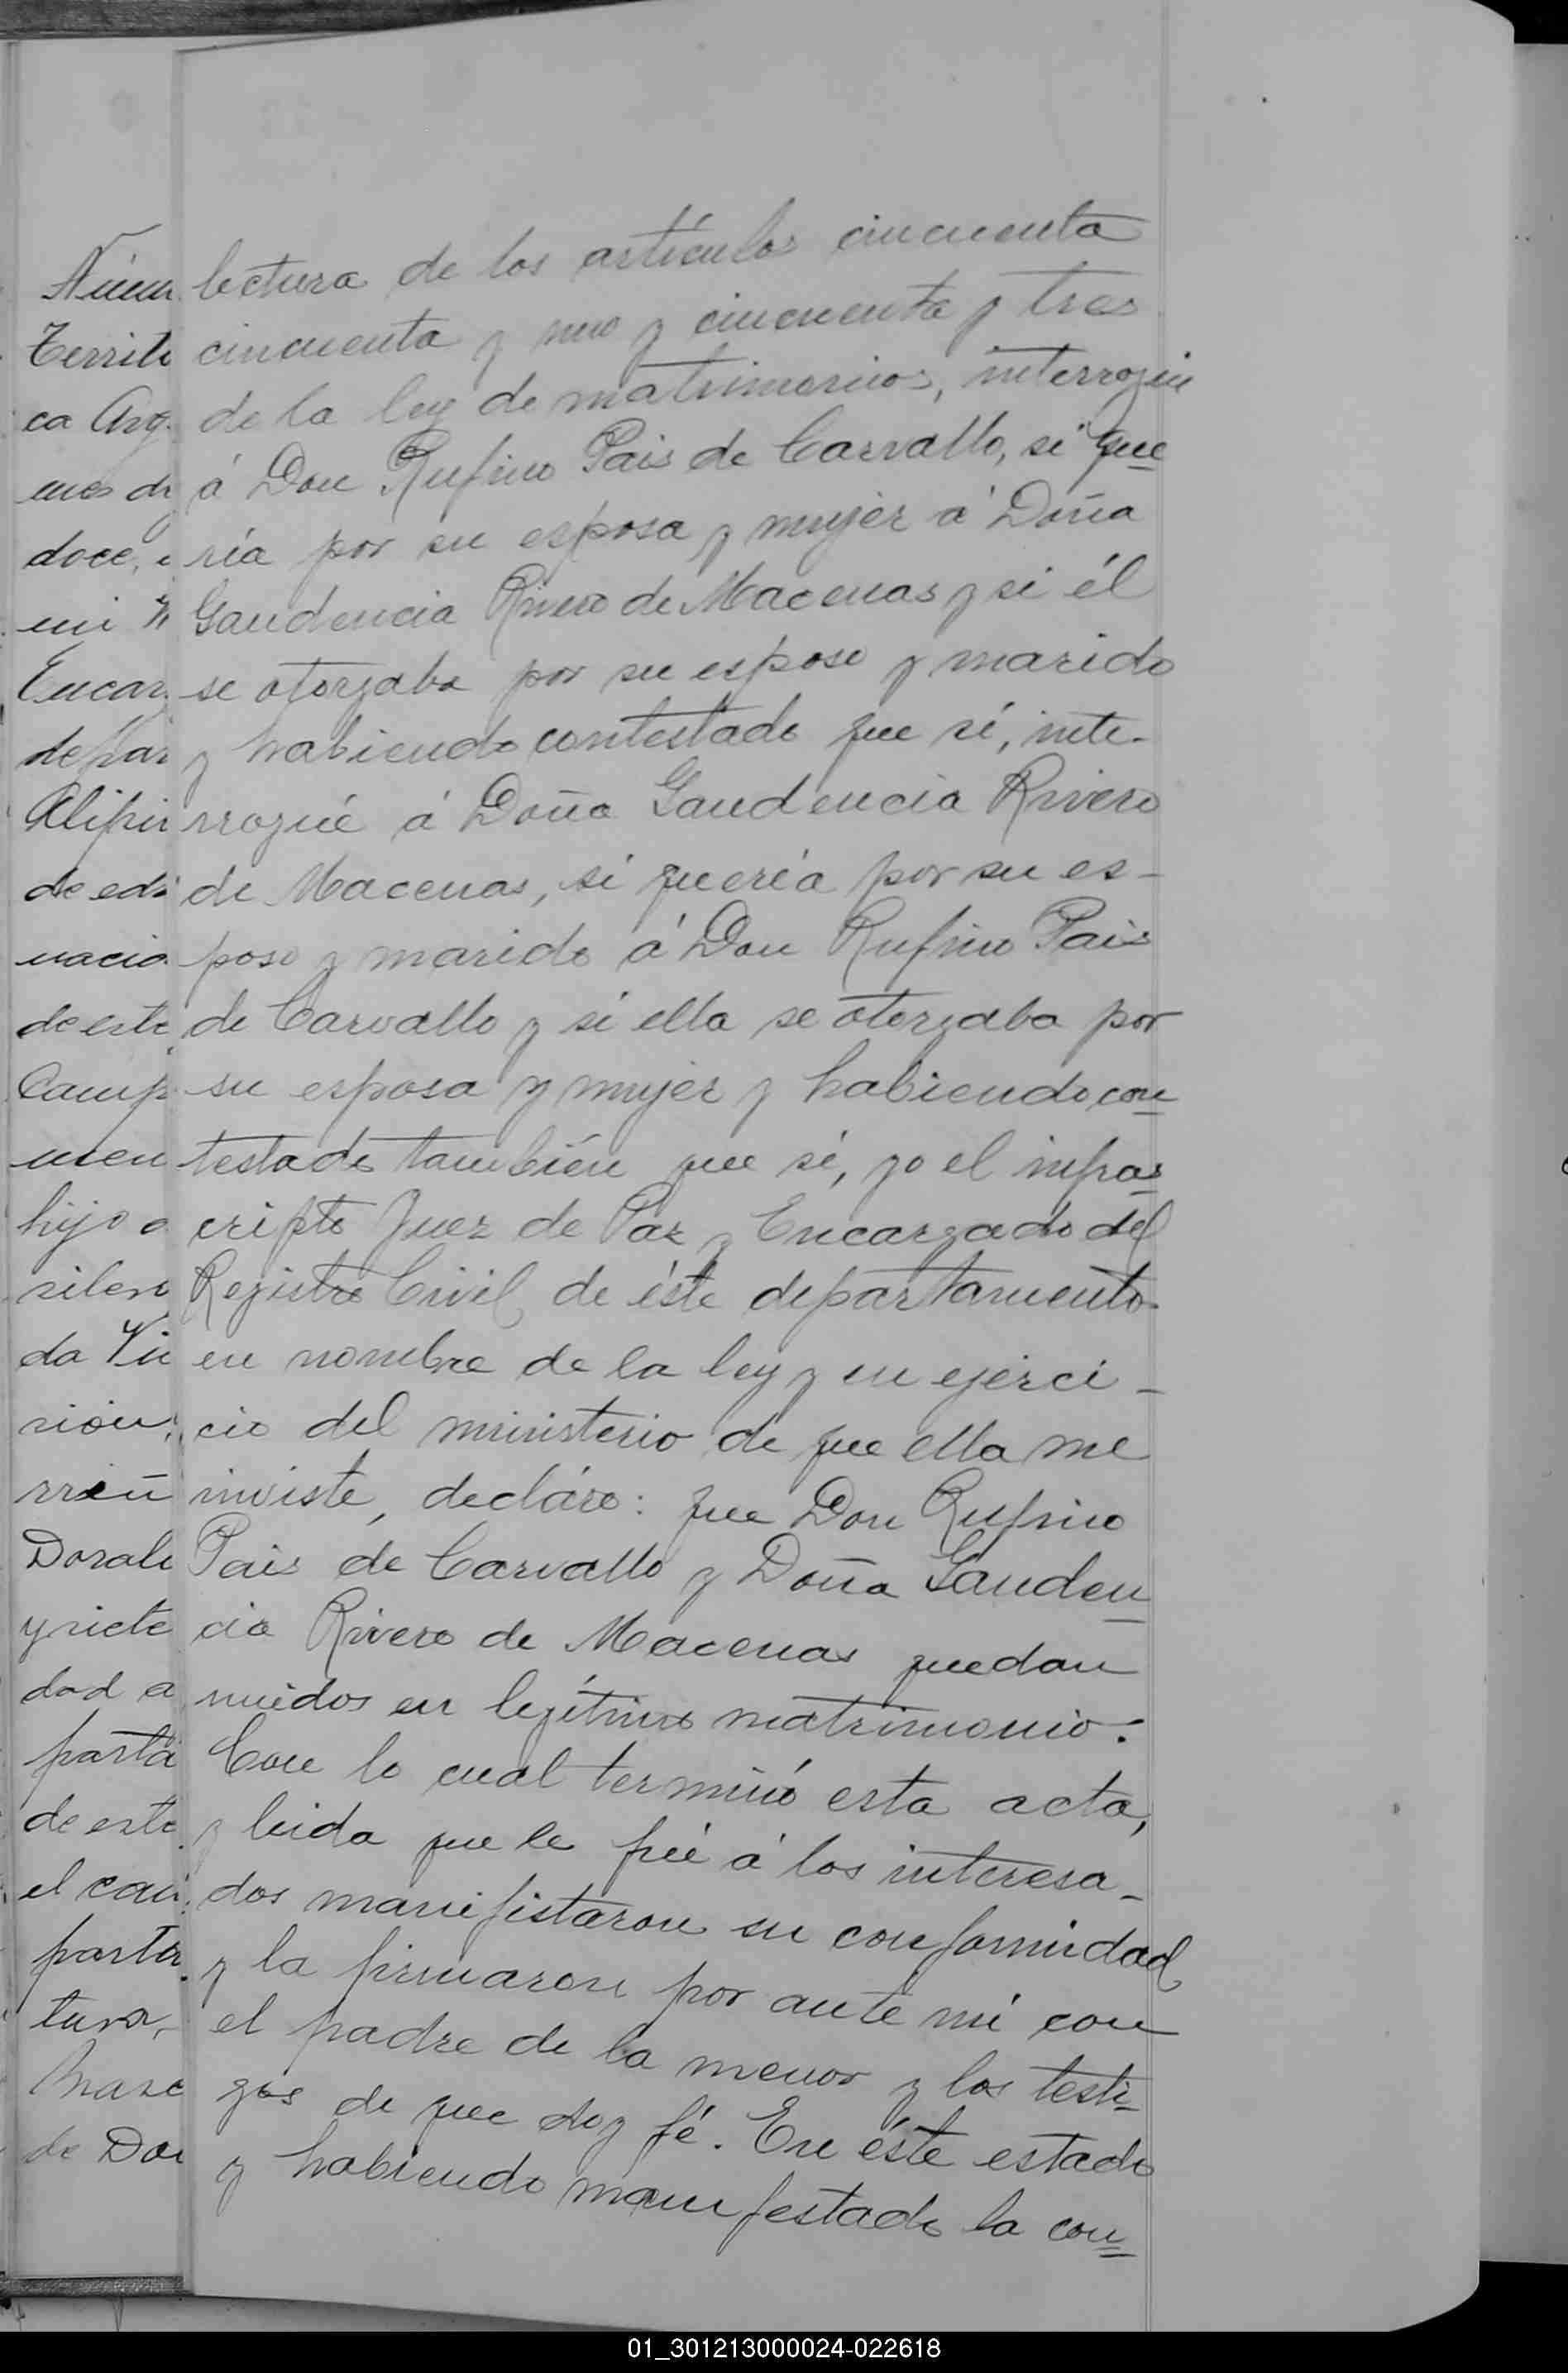 lectura de los artículos cincuenta
cincuenta y uno y cincuenta y tres
de la ley de matrimonios, interrogué
á Don Rufino Pais de Carvallo, si que
ría por su esposa y mujer á Doña
Gaudencia Rivero de Macenas y si él
se otorgaba por su esposo y marido
y habiendo contestado que sí, inte-
rrogué á Doña Gaudencia Rivero
de Macenas, si quería por su es-
poso y marido á Don Rufino Pais
de Carvallo y si ella se otorgaba por
su esposa y mujer y habiendo con
testado también que sí, yo el infras
cripto Juez de Paz y Encargado del
Registro Civil de éste departamento
en nombre de la ley y en ejerci-
cio del ministerio de que ella me
inviste, declaro: que Don Rufino
Pais de Carvallo y Doña Gauden
cia Rivero de Macenas quedan
unidos en legítimo matrimonio.
Con lo cual terminó esta acta,
y leida que le fué á los interesa-
dos manifistaron su conformidad
y la firmaron por ante mi con
el padre de la menor y los testi-
gos de que doy fé. En éste estado
y habiendo manifestado la con
Núm
Territo
ca Arg
mes de
doce,
mi
Encar
depar
Alipi
de eda
nacio
de este
Camp
men
hijo
sileno
da Vi
sión
Dorali
y siete
dad a
parta
de este
el cau
parta
tura
de Don
01_301213000024-022618